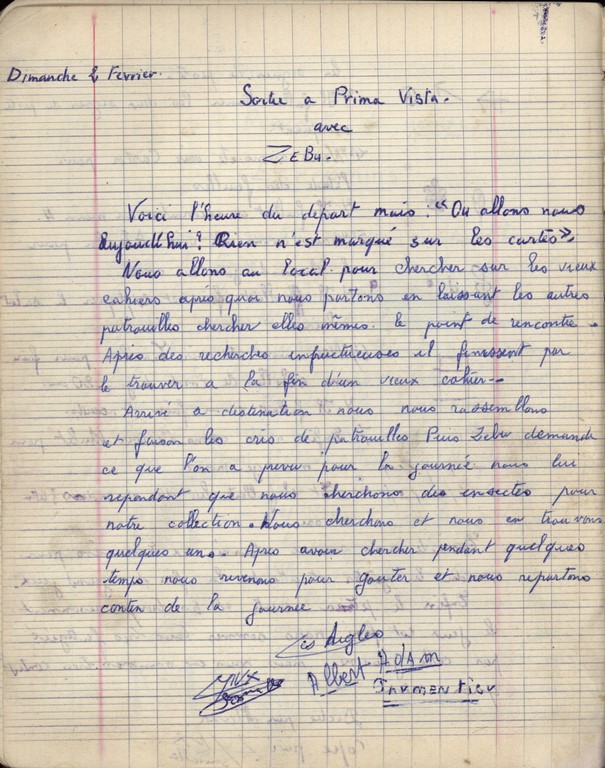 Dimanche 2 Fevrier.
Sortie a Prima Vista.
avec
ZEBU.
Voici l'heure du départ mais : "Ou allons nous
aujourd'hui? Rien n'est marqué sur les cartes".
Nous allons au local pour chercher sur les vieux
cahiers après quoi nous partons en laissant les autres
patrouilles chercher elles mêmes le point de rencontre.
Après des recherches infructueuses il finissent par
le trouver a la fin d'un vieux cahier--
Arrivé a destination nous nous rassemblons
et faison les cris de patrouilles Puis Zebu demande
ce que l'on a prevu pour la journée nous lui
repondant que nous cherchons des insectes pour
notre collection. Nous cherchons et nous en trouvons
quelques uns. Apres avoir chercher pendant quelques
temps nous revenons pour gouter et nous repartons
conten de la journée
Les Aigles
Albert Adam